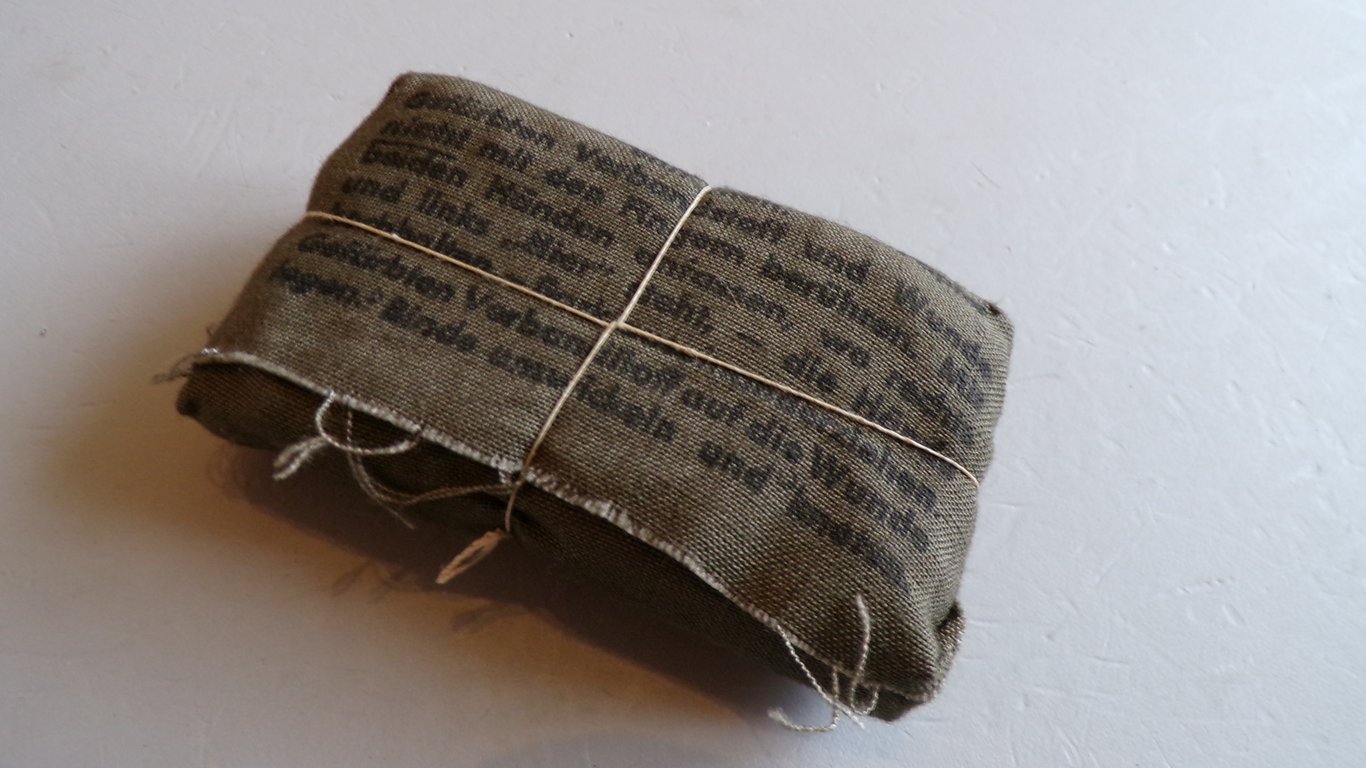 Gefärbten Verbandstoff und Wunde
nicht mit den Fingern berühren, mit
beiden Händen anfassen, wo rechts
und links „Hier“ steht, – die Hände
hochhalten
Gefärbten Verbandstoff auf die Wunde
legen. Binde umwickeln und